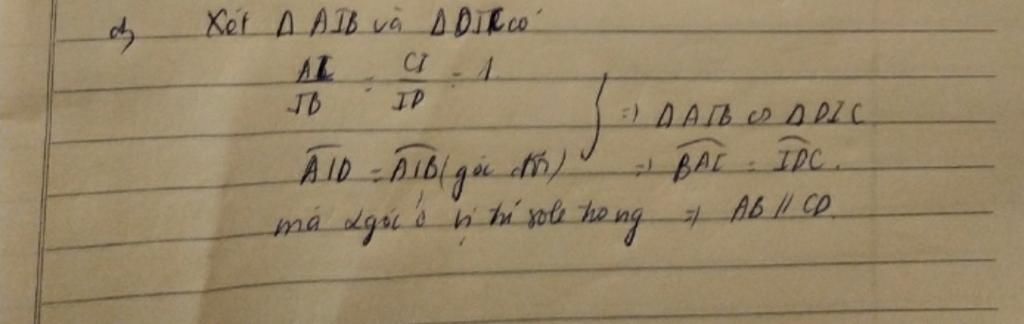 d, Xét Δ AIB và Δ DIC có
AI/IB = CI/ID = 1
⇒ Δ AIB ∽ Δ DIC
AID = AIB (góc đđ) ⇒ BAI = IDC.
mà 2 góc ở vị trí sole trong ⇒ AB // CD.